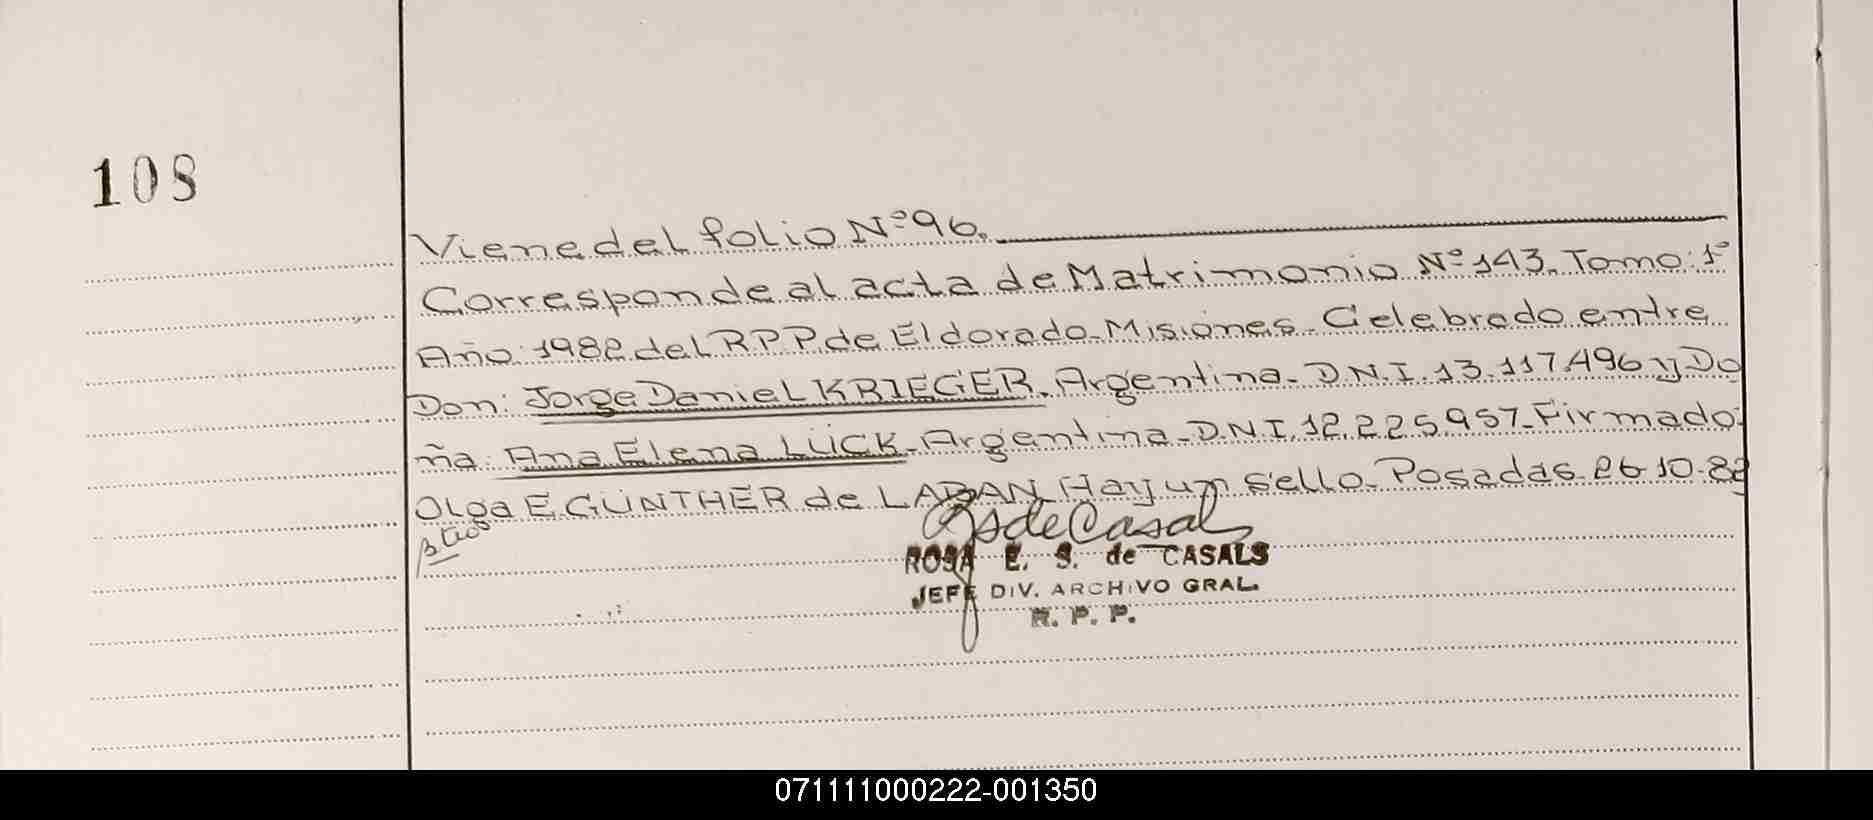 108
Viene del folio Nº 96.
Corresponde al acta de Matrimonio Nº 143. Tomo: 1º
Año: 1982 del RPP de Eldorado-Misiones. Celebrado entre
Don: Jorge Daniel KRIEGER. Argentina. D.N.I. 13.117.496 y Do
ña: Ana Elena LÜCK. Argentina. D.N.I. 12.225.957. Firmado:
Olga E GÜNTHER de LABAN. Hay un sello. Posadas. 26-10-82
ROSA E. S. de CASALS
JEFE DIV. ARCHIVO GRAL.
R. P. P.
071111000222-001350